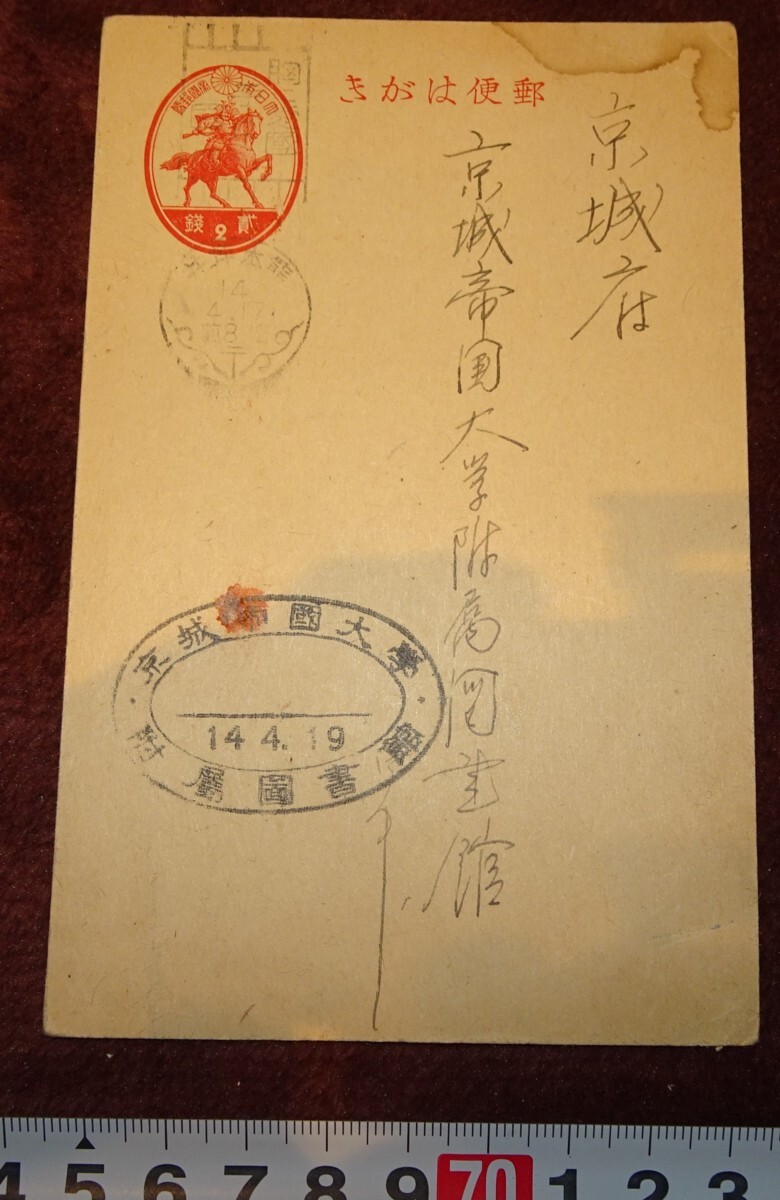 郵便はがき
大日本帝國郵便
貳錢
2
14
4.17
京城府
京城帝国大学附属図書館
御中
京城帝國大學
14 4. 19
附屬圖書館
4 5 6 7 8 9 70 1 2 3